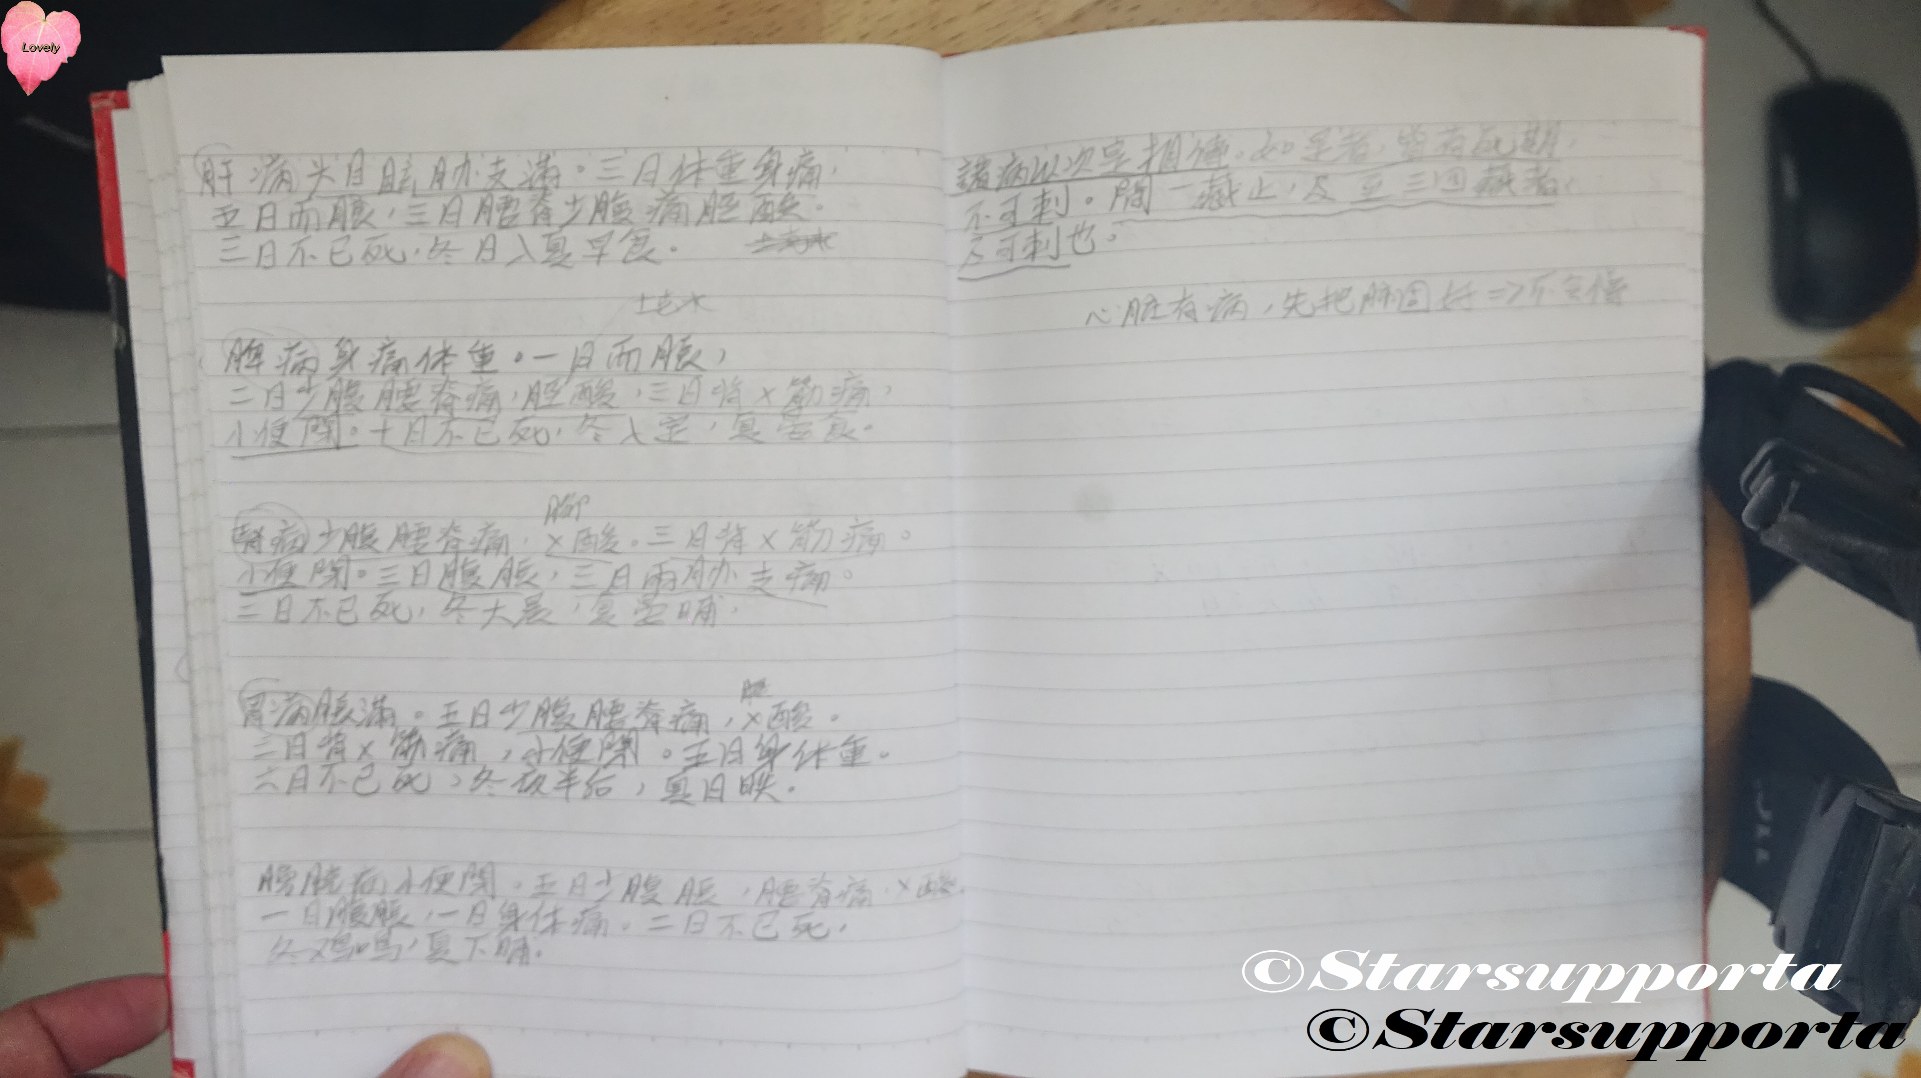 Lovely
肝病头目眩肋支满。三日体重身痛，
五日而胀，三日腰脊少腹痛胫酸。
三日不已死，冬日入夏早食。
土克水
脾病身痛体重。一日而胀，
二日少腹腰脊痛，胫酸，三日背x筋痛，
小便閉。十日不已死，冬人定，夏晏食。
腎病少腹腰脊痛，x酸。三日背x筋痛。
小便閉。三日腹胀，三日兩肋支痛。
三日不已死，冬大晨，夏晏晡，
胃病胀滿。五日少腹腰脊痛，x酸。
三日背x筋痛，小便閉。五日身体重。
六日不已死，冬夜半后，夏日昳。
膀胱病小便閉，五日少腹胀，腰脊痛，x酸，
一日腹胀，一日身体痛。二日不已死，
冬鸡鳴，夏下晡。
諸病以次是相傳。如是者，皆有死期，
不可刺。間一臟止，及至三四臟者，
乃可刺也。
心脏有病，先把脾固好=>不会傳
©Starsupporta
©Starsupporta